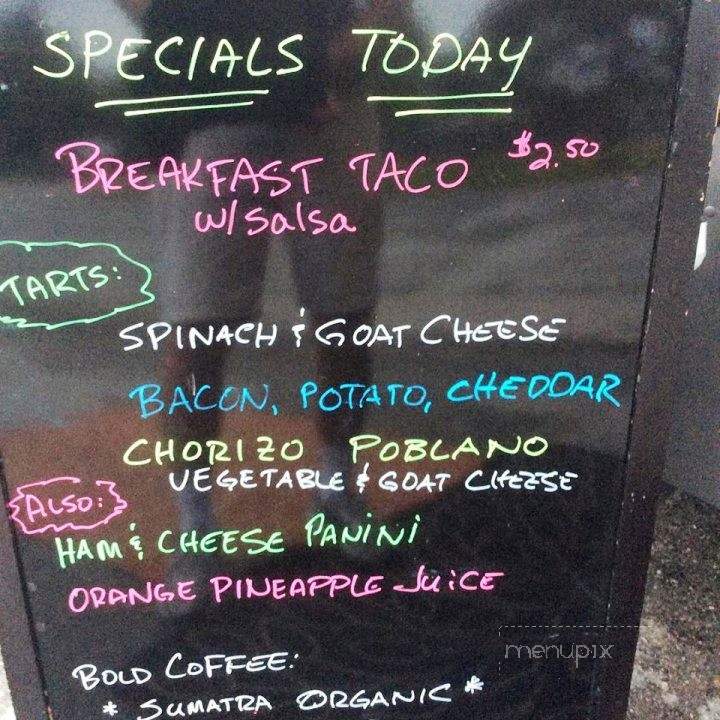 SPECIALS TODAY
BREAKFAST TACO $2.50
w/ salsa
TARTS:
SPINACH & GOAT CHEESE
BACON, POTATO, CHEDDAR
CHORIZO POBLANO
VEGETABLE & GOAT CHEESE
ALSO:
HAM & CHEESE PANINI
ORANGE PINEAPPLE JUICE
BOLD COFFEE:
* SUMATRA ORGANIC *
menupix